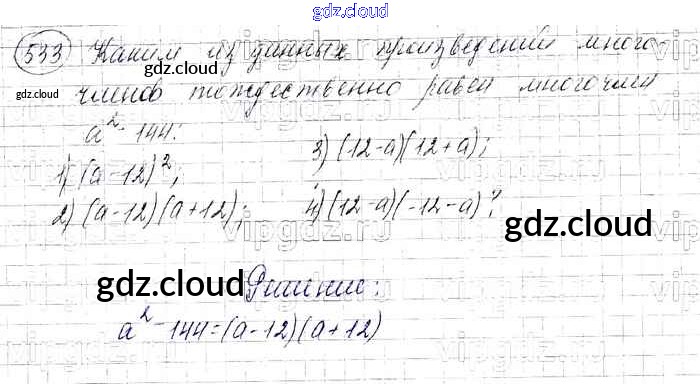 gdz.cloud
533 Каким из данных произведений много
gdz.cloud
gdz.cloud членов тождественно равен многочлен
a² - 144:
1) (a-12)²; 3) (12-a)(12+a);
2) (a-12)(a+12); 4) (12-a)(-12-a)?
vipgdz.ru
gdz.cloud
gdz.cloud Решение:
a² - 144 = (a-12)(a+12)